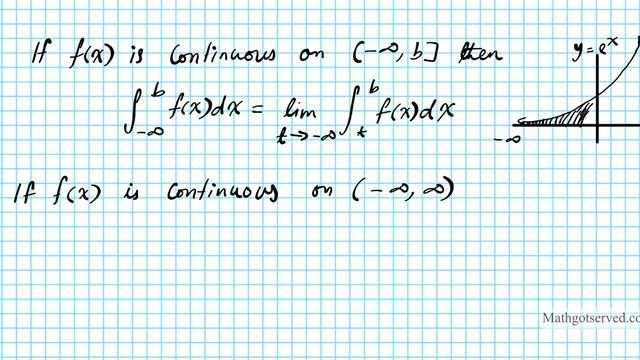 If f(x) is continuous on (-∞, b] then
∫_{-∞}^{b} f(x)dx = lim_{t→-∞} ∫_{t}^{b} f(x)dx
y=eˣ
-∞
If f(x) is continuous on (-∞, ∞)
Mathgotserved.co